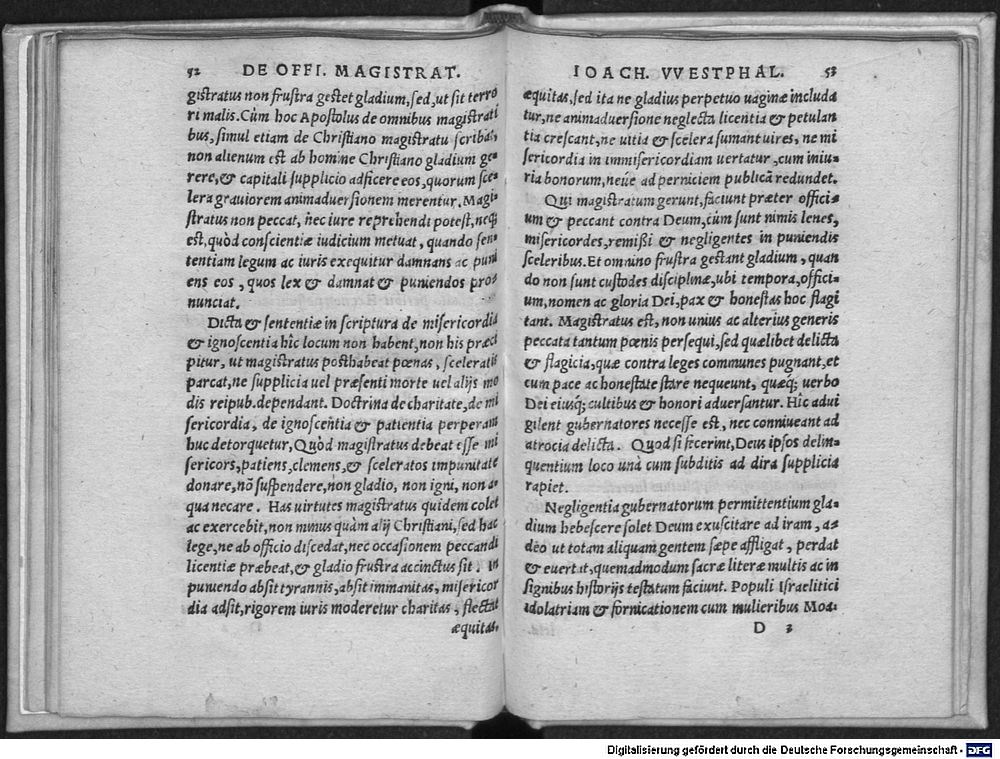 52 DE OFFI. MAGISTRAT.
gistratus non frustra gestet gladium, sed, ut sit terro
ri malis. Cùm hoc Apostolus de omnibus magistrati
bus, simul etiam de Christiano magistratu scribat,
non alienum est ab homine Christiano gladium ge-
rere, & capitali supplicio adficere eos, quorum sce-
lera grauiorem animaduersionem merentur. Magi-
stratus non peccat, nec iure reprehendi potest, neq;
est, quòd conscientiæ iudicium metuat, quando sen-
tentiam legum ac iuris exequitur damnans ac puni
ens eos, quos lex & damnat & puniendos pro-
nunciat.
Dicta & sententiæ in scriptura de misericordia
& ignoscentia hîc locum non habent, non his præci
pitur, ut magistratus posthabeat pœnas, sceleratis
parcat, ne supplicia uel præsenti morte uel alijs mo
dis reipub. dependant. Doctrina de charitate, de mi
sericordia, de ignoscentia & patientia perperam
huc detorquetur, Quòd magistratus debeat esse mi
sericors, patiens, clemens, & sceleratos impunitate
donare, nõ suspendere, non gladio, non igni, non a-
qua necare. Has uirtutes magistratus quidem colet
ac exercebit, non minus quàm alij Christiani, sed hac
lege, ne ab officio discedat, nec occasionem peccandi
licentiæ præbeat, & gladio frustra accinctus sit. In
puniendo absit tyrannis, absit immanitas, misericor
dia adsit, rigorem iuris moderetur charitas, flectat
æquitas.
IOACH. VVESTPHAL. 53
æquitas, sed ita ne gladius perpetuo uaginæ includa
tur, ne animaduersione neglecta licentia & petulan
tia crescant, ne uitia & scelera sumant uires, ne mi
sericordia in immisericordiam uertatur, cum iniu-
ria bonorum, neúe ad perniciem publicã redundet.
Qui magistratum gerunt, faciunt præter offici-
um & peccant contra Deum, cùm sunt nimis lenes,
misericordes, remißi & negligentes in puniendis
sceleribus. Et omnino frustra gestant gladium, quan
do non sunt custodes disciplinæ, ubi tempora, offici-
um, nomen ac gloria Dei, pax & honestas hoc flagi
tant. Magistratus est, non unius ac alterius generis
peccata tantum pœnis persequi, sed quælibet delicta
& flagicia, quæ contra leges communes pugnant, et
cum pace ac honestate stare nequeunt, quæq́; uerbo
Dei eiusq́; cultibus & honori aduersantur. Hîc adui
gilent gubernatores necesse est, nec conniueant ad
atrocia delicta. Quod si fecerint, Deus ipsos delin-
quentium loco unà cum subditis ad dira supplicia
rapiet.
Negligentia gubernatorum permittentium gla-
dium hebescere solet Deum exuscitare ad iram, a-
deo ut totam aliquam gentem sæpe affligat, perdat
& euertat, quemadmodum sacræ literæ multis ac in
signibus historijs testatum faciunt. Populi Israelitici
idolatriam & fornicationem cum mulieribus Moa-
D 3
Digitalisierung gefördert durch die Deutsche Forschungsgemeinschaft - DFG